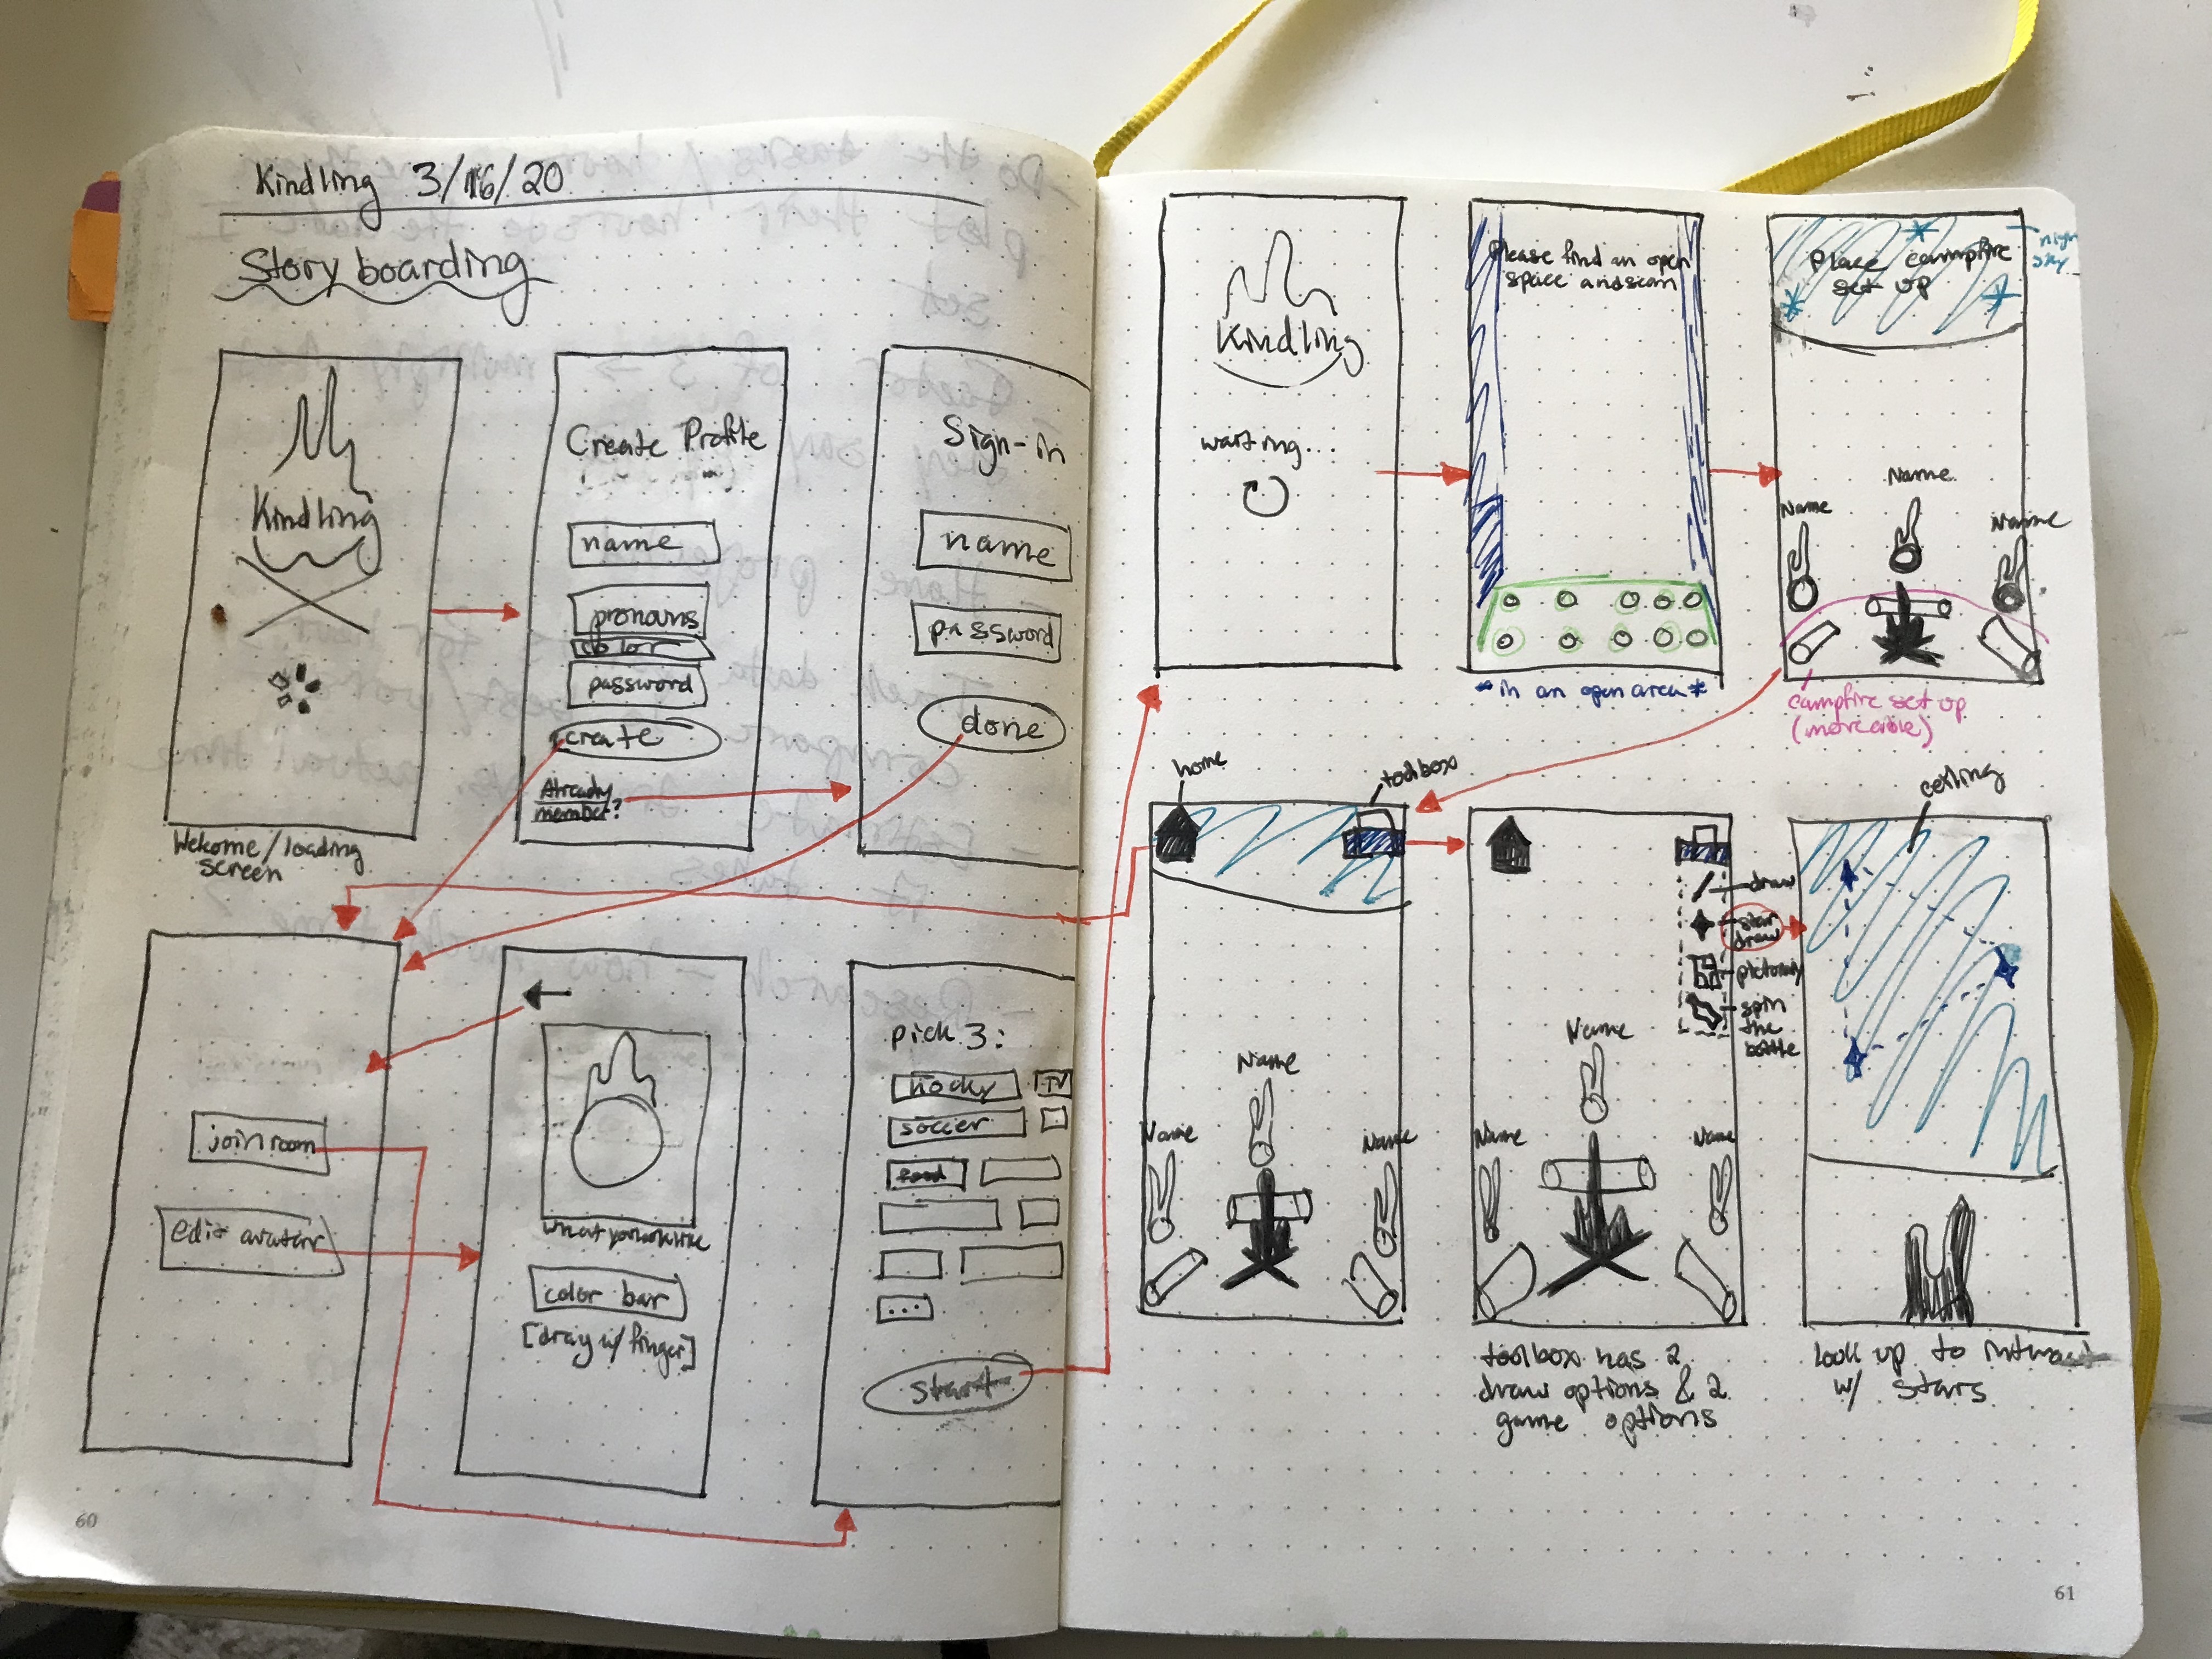 Kindling 3/16/20
Story boarding
Kindling
Welcome/loading
screen
Create Profile
name
pronouns
color
password
create
Already
member?
Sign-in
name
password
done
join room
edit avatar
what you look like
color bar
[drag w/ finger]
pick 3:
hocky
TV
soccer
food
...
start
60
Kindling
waiting...
Please find an open
space and scan
*in an open area*
night
sky
Place campfire
set up
Name
Name
Name
campfire set up
home
toolbox
Name
Name
Name
draw
star
draw
pictionary
spin
the
bottle
Name
Name
Name
toolbox has 2
draw options & 2
game options
ceiling
look up to interact
w/ stars
61